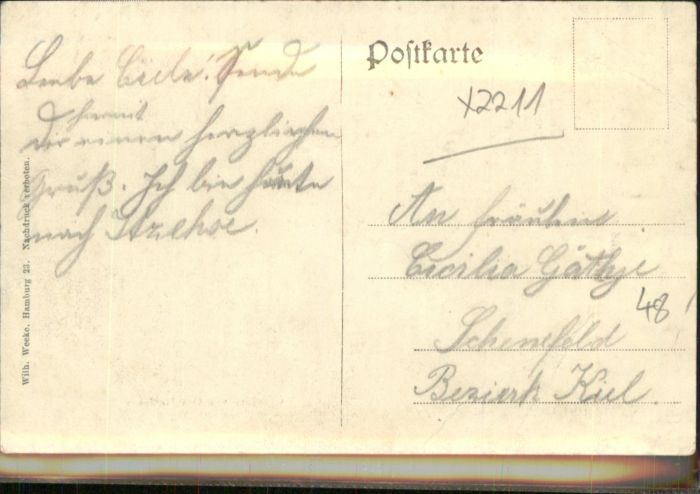 Liebe Cecile! Sende
hiermit
Dir einen herzlichen
Gruß. Ich bin heute
nach Itzehoe.
Wilh. Weeke, Hamburg 23. Nachdruck verboten.
Postkarte
X2211
An Fräulein
Cecilia Göttsje
48
Schenefeld
Bezierk Kiel.